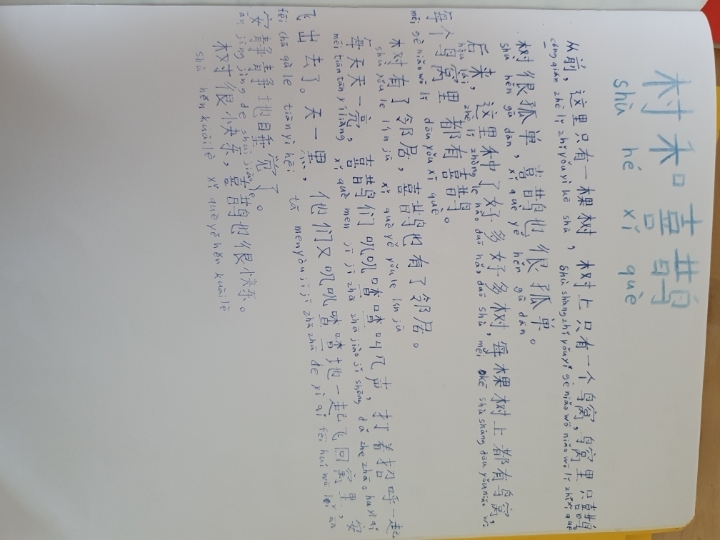 树和喜鹊
shù hé xǐ què
从前，这里只有一棵树，树上只有一个鸟窝，鸟窝里只喜鹊
cóng qián zhè lǐ zhǐ yǒu yì kē shù, shù shàng zhǐ yǒu yí gè niǎo wō niǎo wō lǐ zhǐ què
树很孤单，喜鹊也很孤单。
shù hěn gū dān, xǐ què yě hěn gū dān
后来，这里种了好多好多树每棵树上都有鸟窝，
hòu lái zhè lǐ zhòng le hǎo duō hǎo duō shù, měi kē shù shàng dōu yǒu niǎo wō
每个鸟窝里都有喜鹊。
měi gè niǎo wō lǐ dōu yǒu xǐ què
树有了邻居，喜鹊也有了邻居。
shù yǒu le lín jū xǐ què yě yǒu le lín jū
每天天一亮，喜鹊们叽叽喳喳叫几声，打着招呼一起
měi tiān tiān yí liàng xǐ què men jī jī zhā zhā jiào jǐ shēng dǎ zhe zhāo hu yì qǐ
飞出去了。天一黑，他们又叽叽喳喳地一起飞回窝里，安
fēi chū qù le tiān yì hēi tā men yòu jī jī zhā zhā de yì qǐ fēi huí wō lǐ ān
安静静地睡觉了。
ān jìng jìng de shuì jiào le
树很快乐，喜鹊也很快乐。
shù hěn kuài lè xǐ què yě hěn kuài lè